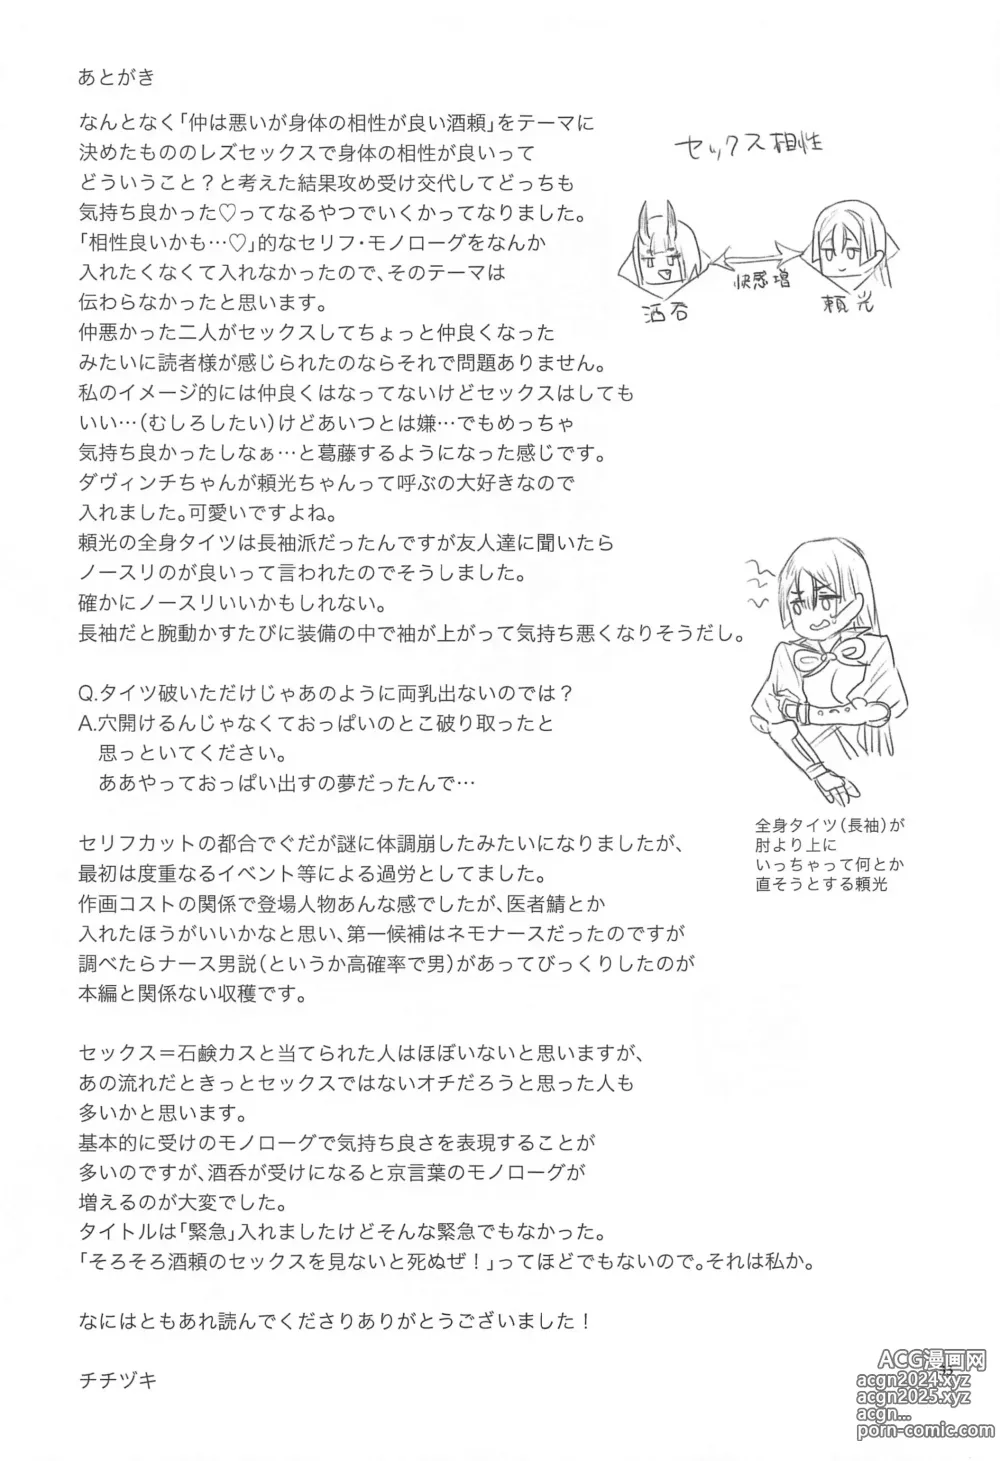 あとがき
なんとなく「仲は悪いが身体の相性が良い酒頼」をテーマに
決めたもののレズセックスで身体の相性が良いって
どういうこと？と考えた結果攻め受け交代してどっちも
気持ち良かった♡ってなるやつでいくかってなりました。
「相性良いかも…♡」的なセリフ・モノローグをなんか
入れたくなくて入れなかったので、そのテーマは
伝わらなかったと思います。
仲悪かった二人がセックスしてちょっと仲良くなった
みたいに読者様が感じられたのならそれで問題ありません。
私のイメージ的には仲良くはなってないけどセックスはしても
いい…（むしろしたい）けどあいつとは嫌…でもめっちゃ
気持ち良かったしなぁ…と葛藤するようになった感じです。
ダヴィンチちゃんが頼光ちゃんって呼ぶの大好きなので
入れました。可愛いですよね。
頼光の全身タイツは長袖派だったんですが友人達に聞いたら
ノースリのが良いって言われたのでそうしました。
確かにノースリいいかもしれない。
長袖だと腕動かすたびに装備の中で袖が上がって気持ち悪くなりそうだし。
Q.タイツ破いただけじゃあのように両乳出ないのでは？
A.穴開けるんじゃなくておっぱいのとこ破り取ったと
思っといてください。
ああやっておっぱい出すの夢だったんで…
セリフカットの都合でぐだが謎に体調崩したみたいになりましたが、
最初は度重なるイベント等による過労としてました。
作画コストの関係で登場人物あんな感でしたが、医者鯖とか
入れたほうがいいかなと思い、第一候補はネモナースだったのですが
調べたらナース男説（というか高確率で男）があってびっくりしたのが
本編と関係ない収穫です。
セックス＝石鹸カスと当てられた人はほぼいないと思いますが、
あの流れだときっとセックスではないオチだろうと思った人も
多いかと思います。
基本的に受けのモノローグで気持ち良さを表現することが
多いのですが、酒呑が受けになると京言葉のモノローグが
増えるのが大変でした。
タイトルは「緊急」入れましたけどそんな緊急でもなかった。
「そろそろ酒頼のセックスを見ないと死ぬぜ！」ってほどでもないので。それは私か。
なにはともあれ読んでくださりありがとうございました！
チチヅキ
セックス相性
快感増
酒呑
頼光
全身タイツ（長袖）が
肘より上に
いっちゃって何とか
直そうとする頼光
33
ACG漫画网
acgn2024.xyz
acgn2025.xyz
acgn...
porn-comic.com